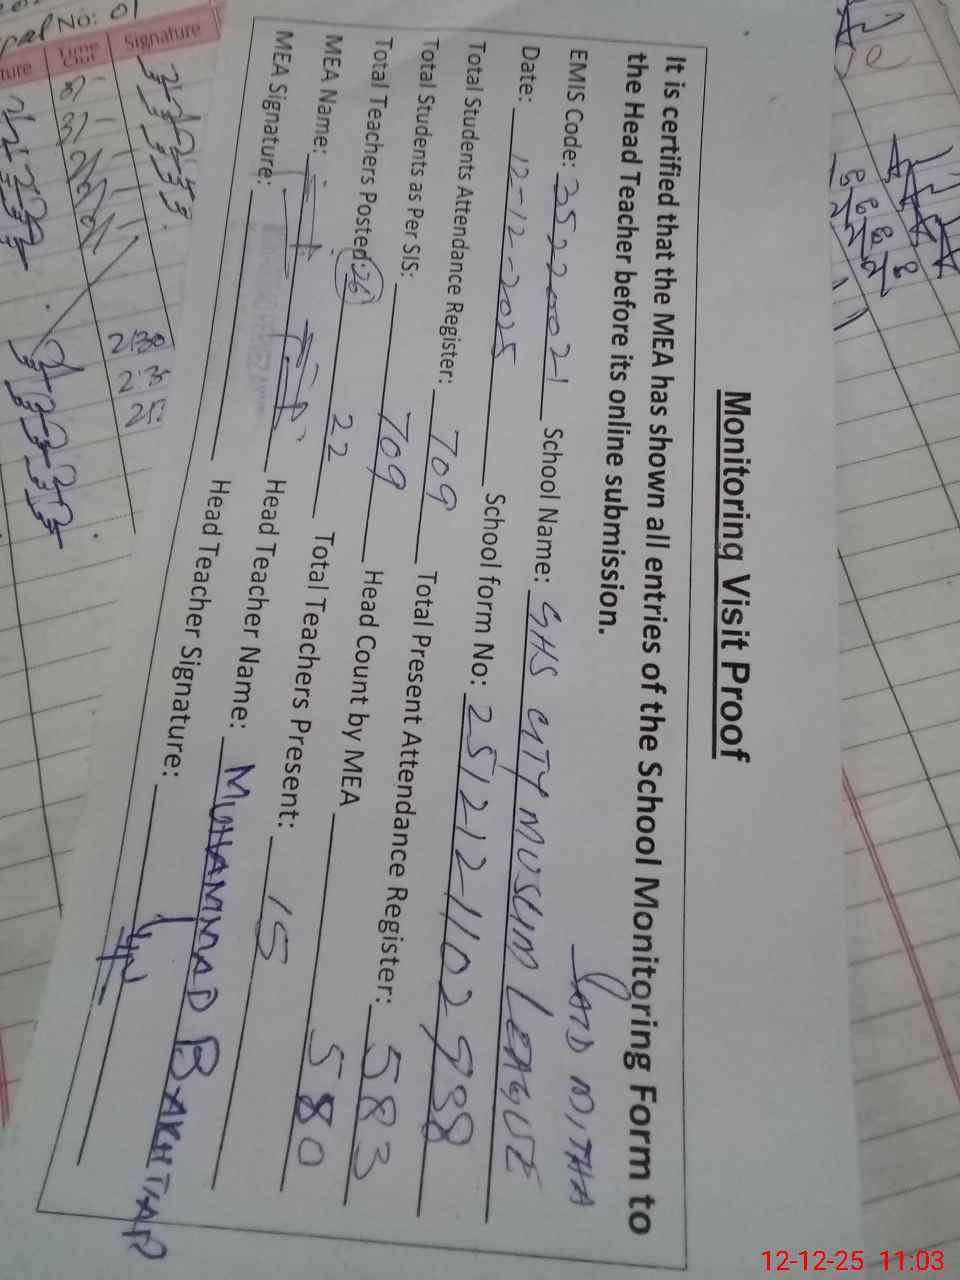 Monitoring Visit Proof
It is certified that the MEA has shown all entries of the School Monitoring Form to
the Head Teacher before its online submission.
EMIS Code: 35220021 School Name: GHS CITY MUSLIM LEAGUE
Date: 12-12-2025 School form No: 251212-1102988
Total Students Attendance Register: 709 Total Present Attendance Register: 583
Total Students as Per SIS: 709 Head Count by MEA 580
Total Teachers Posted: 26 22 Total Teachers Present: 15
MEA Name: Head Teacher Name: MUHAMMAD BAKHTIAR
MEA Signature: Head Teacher Signature:
No: 01
Time Out
Signature
12-12-25 11:03